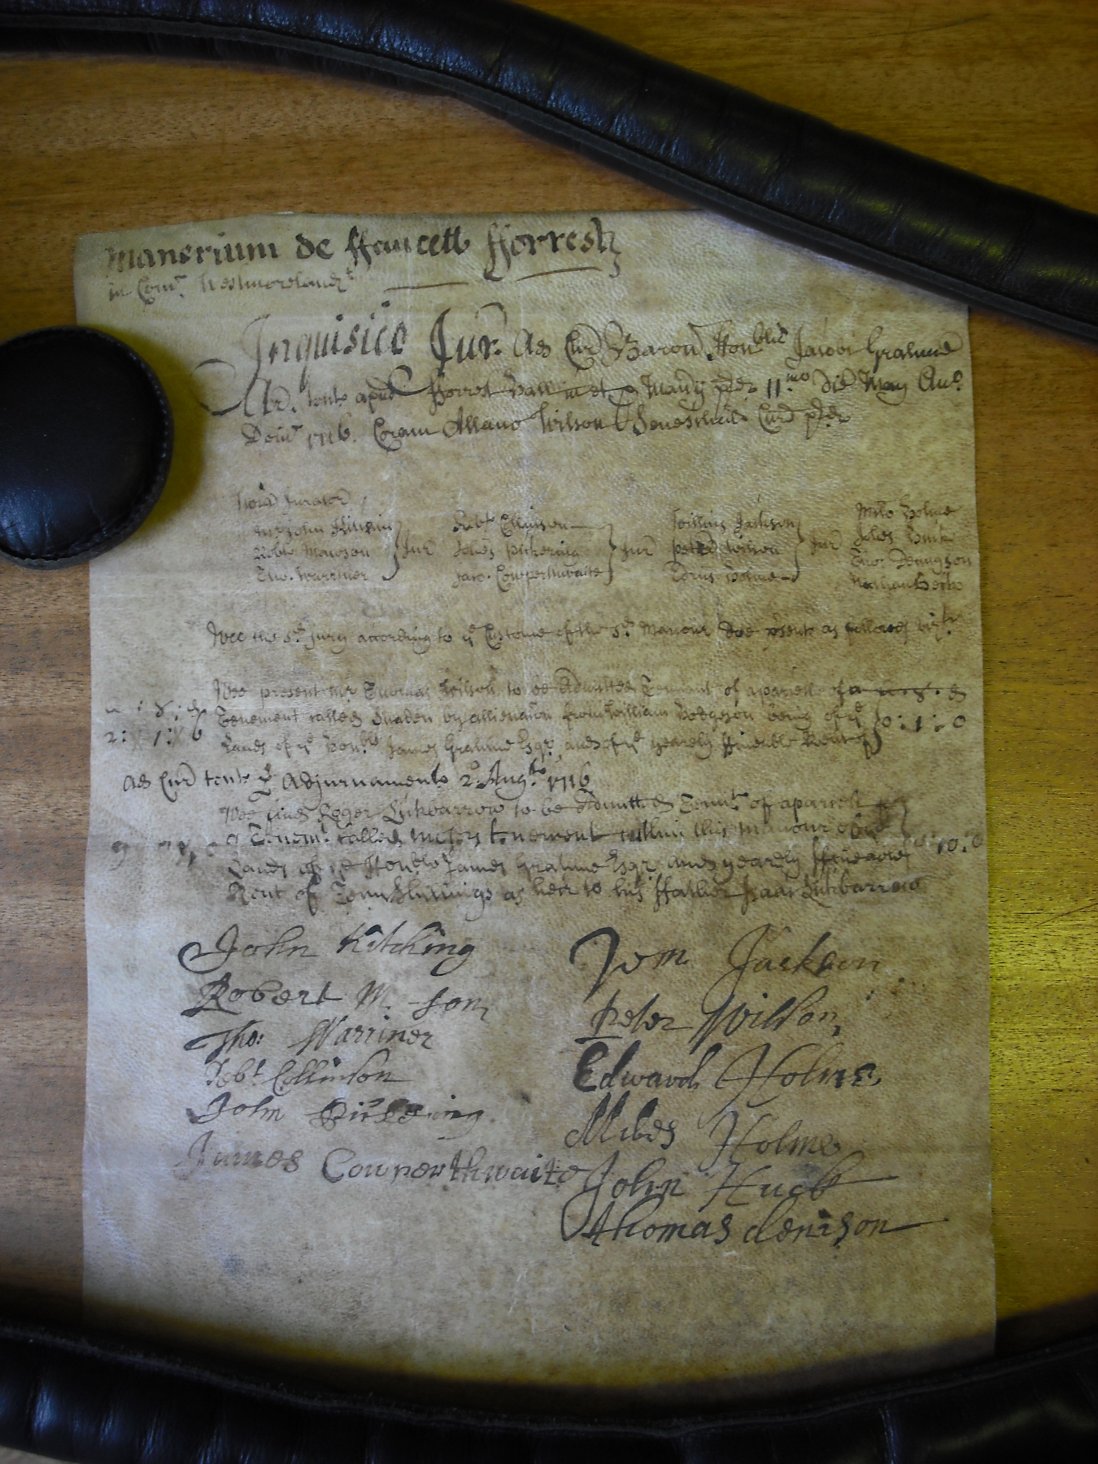 Manerium de ffawcett fforrest
in Com. Westmorelandie
Inquisico Jur. Ad Cur Baron Honblis Jacobi Grahme
Ar. tent apud fforrest Hall in et p Man pder 11mo die May Ano
Doini 1716. Coram Allano Wilson Senesthall Cur pder
Noia Jurator
John Kitchin
Robt Mawson
Tho. Warriner
Jur
Robt Collinson
Johes Pickering
Jac. Cowperthwaite
Jur
Jackson
Peter Wilson
Holme
Jur
Milo Holme
Johes Huck
Tho. Denuyson
Wee the sd Jury according to ye Custome of the sd Manour doe psent as followes
Wee present Mr Thomas Wilson to be Admitted Tennant of a parcell of a
Tenement called by allienation from William Hodgson being of ye
Lands of ye Honble James Grahme Esqr and of ye yearely ffineable Rent of
0 : 1 : 0
2 : 1 : 6
Ad Cur tent p Adjurnamento 2o Augto 1716
Wee find Roger Lickbarrow to be Admitted Tennt of a parcell
of Tenemt called tenement within this Manour of
Lands of ye Honble James Grahme Esqr and yearely ffineable
Rent of Tenn Shillings as heir to his ffather Isaac Lickbarrow
10 : 0
John Kitching
Robert M son
Tho: Warriner
Robt Collinson
John Pickering
James Cowperthwaite
Jackson
Peter Wilson
Edward Holme
Miles Holme
John Huck
Thomas denison